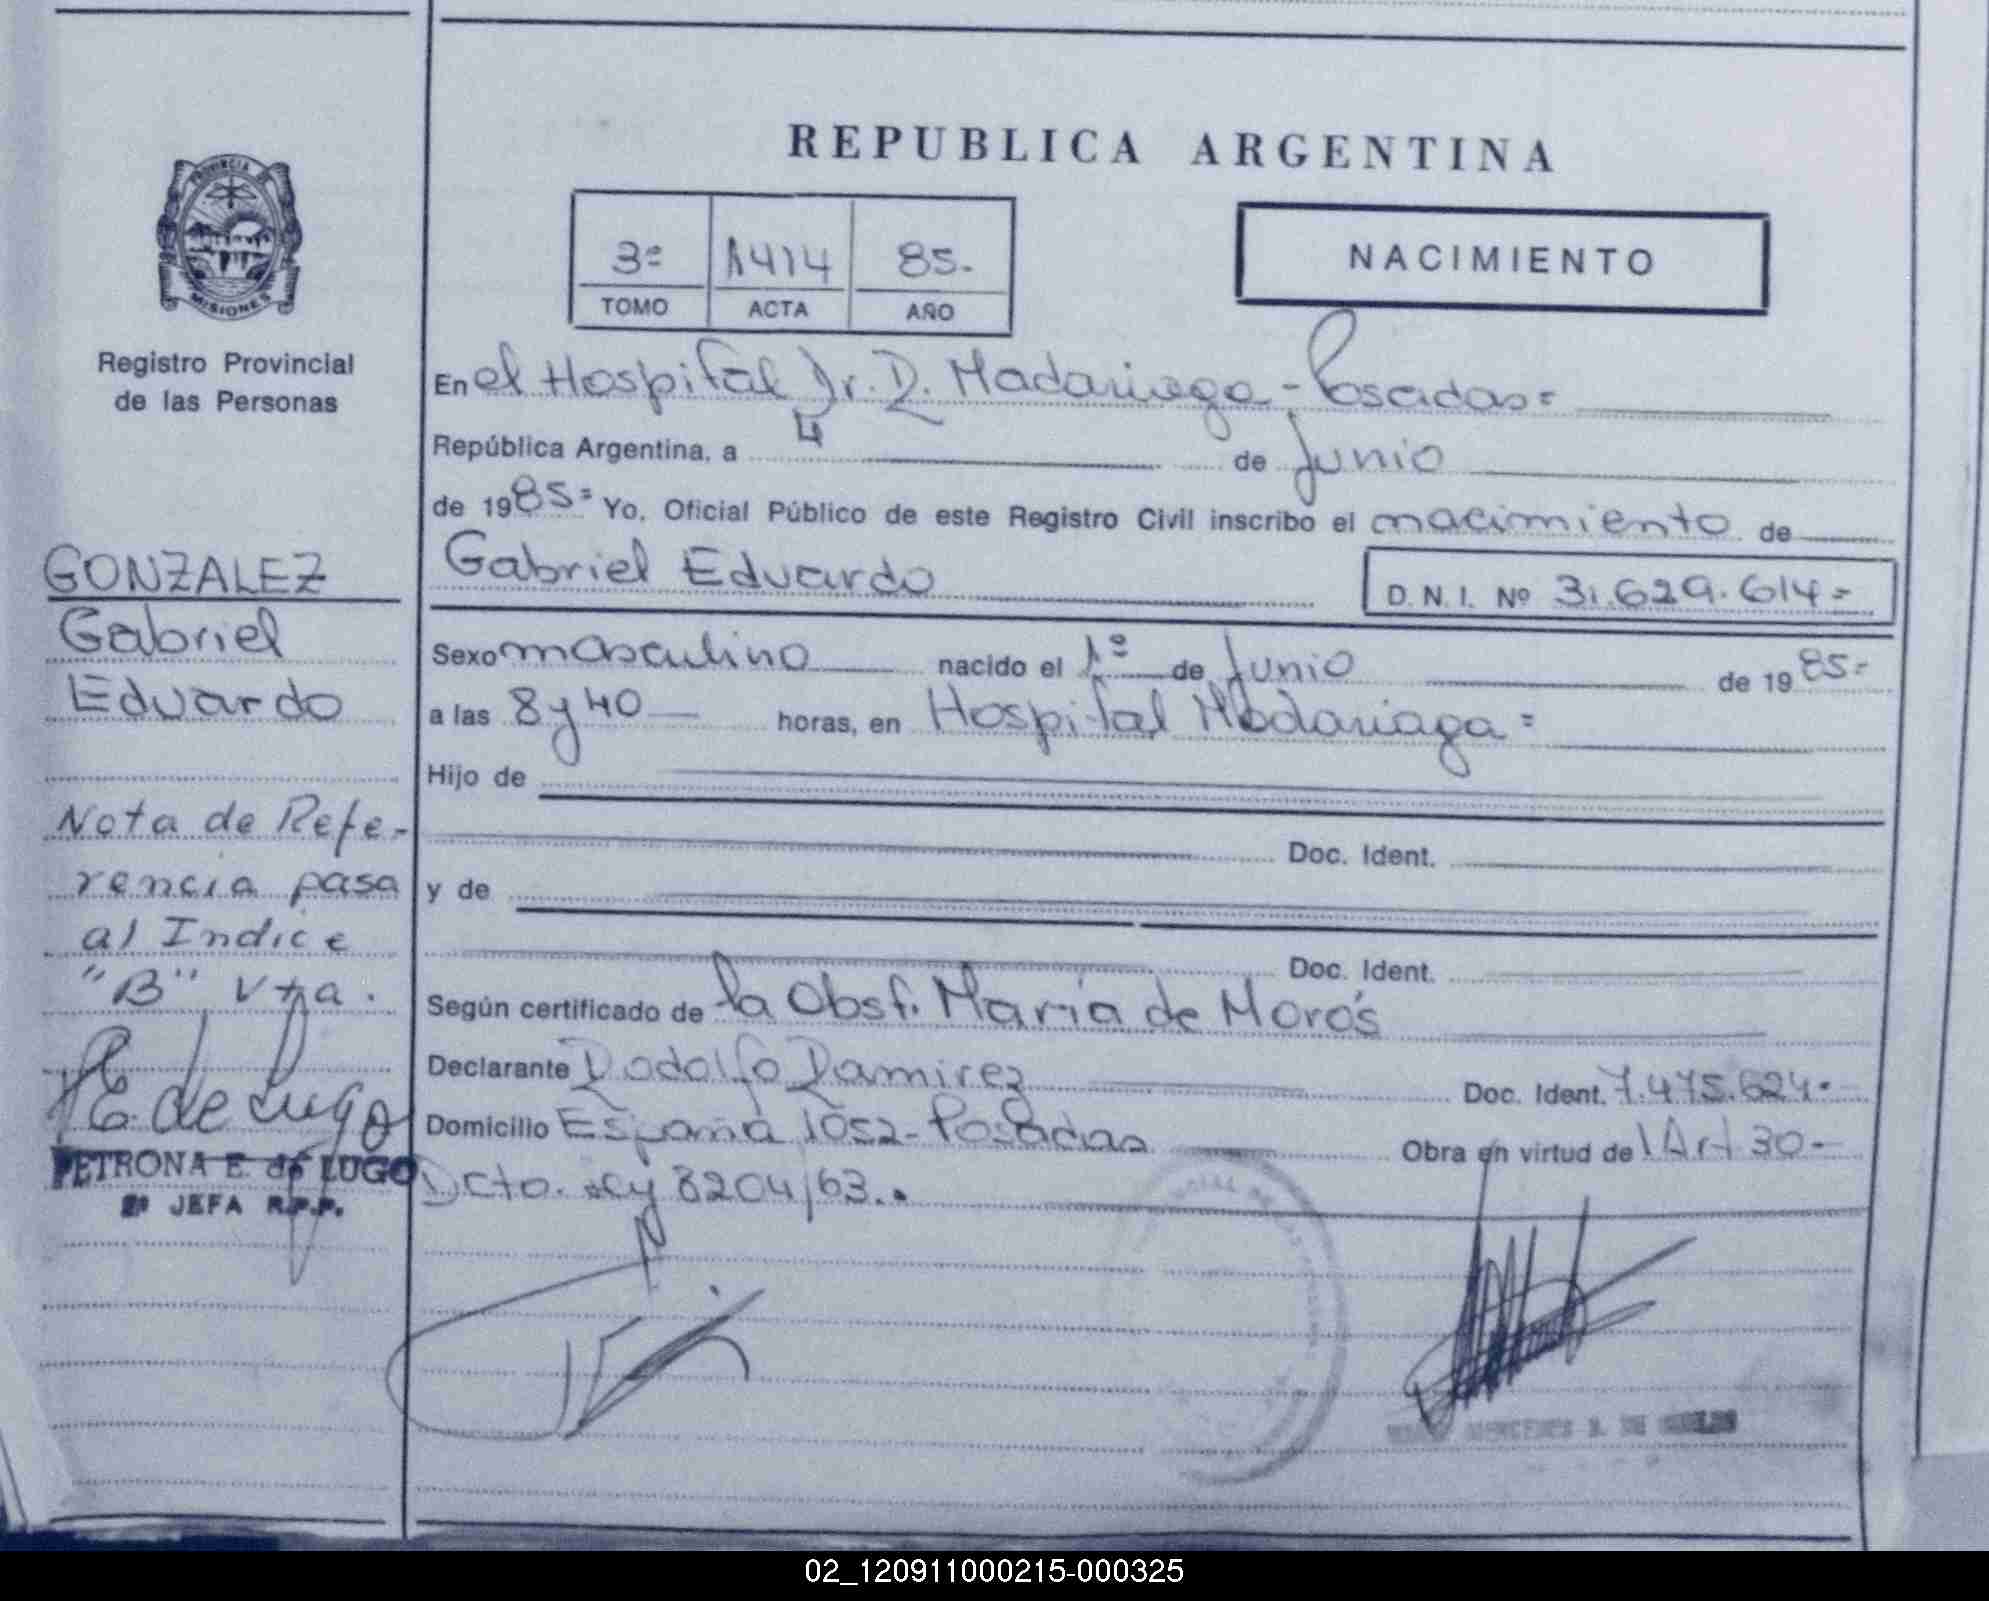 REPUBLICA ARGENTINA
PROVINCIA DE
MISIONES
Registro Provincial
de las Personas
3º 1414 85.-
TOMO ACTA AÑO
NACIMIENTO
En el Hospital Dr. R. Madariaga - Posadas=
República Argentina, a 4 de Junio
de 1985= Yo, Oficial Público de este Registro Civil inscribo el nacimiento de
Gabriel Eduardo D. N. I. Nº 31.629.614=
Sexo masculino nacido el 1º de Junio de 1985=
a las 8 y 40 horas, en Hospital Madariaga =
Hijo de
Doc. Ident.
y de
Doc. Ident.
Según certificado de la Obst. María de Morós
Declarante Rodolfo Ramirez Doc. Ident. 7.475.624.
Domicilio España 1052 - Posadas Obra en virtud del Art 30-
Dcto. Ley 8204/63..
GONZALEZ
Gabriel
Eduardo
Nota de Refe-
rencia pasa
al Indice
"B" Vta.
E. de Lugo
PETRONA E. de LUGO
2º JEFA R.P.P.
MERCEDES
02_120911000215-000325